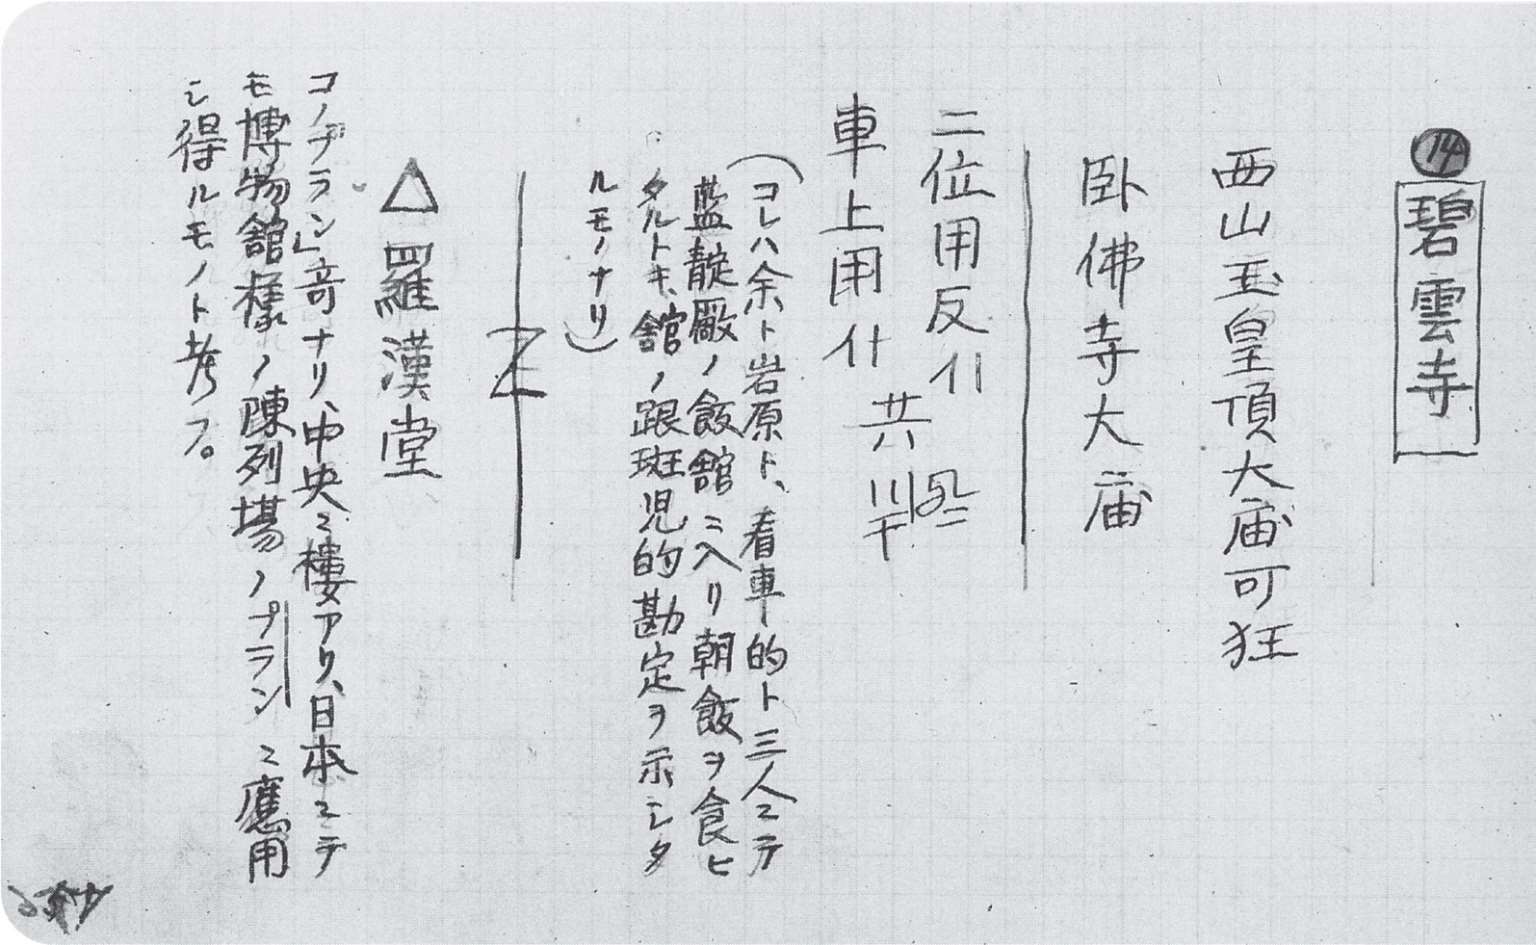 ⑭ 碧雲寺
西山玉皇頂大庙可狂
卧佛寺大庙
二位用反
車上用
共
(コレハ余ト岩原ト、看車的ト三人ニテ
藍靛厰ノ飯舘ニ入リ朝飯ヲ食ヒ
タルトキ、舘ノ跟班児的勘定ヲ示シタ
ルモノナリ)
△羅漢堂
コノプラン」奇ナリ、中央ニ樓アリ、日本ニテ
モ博物舘様ノ陳列場ノプランニ應用
シ得ルモノト考フ。